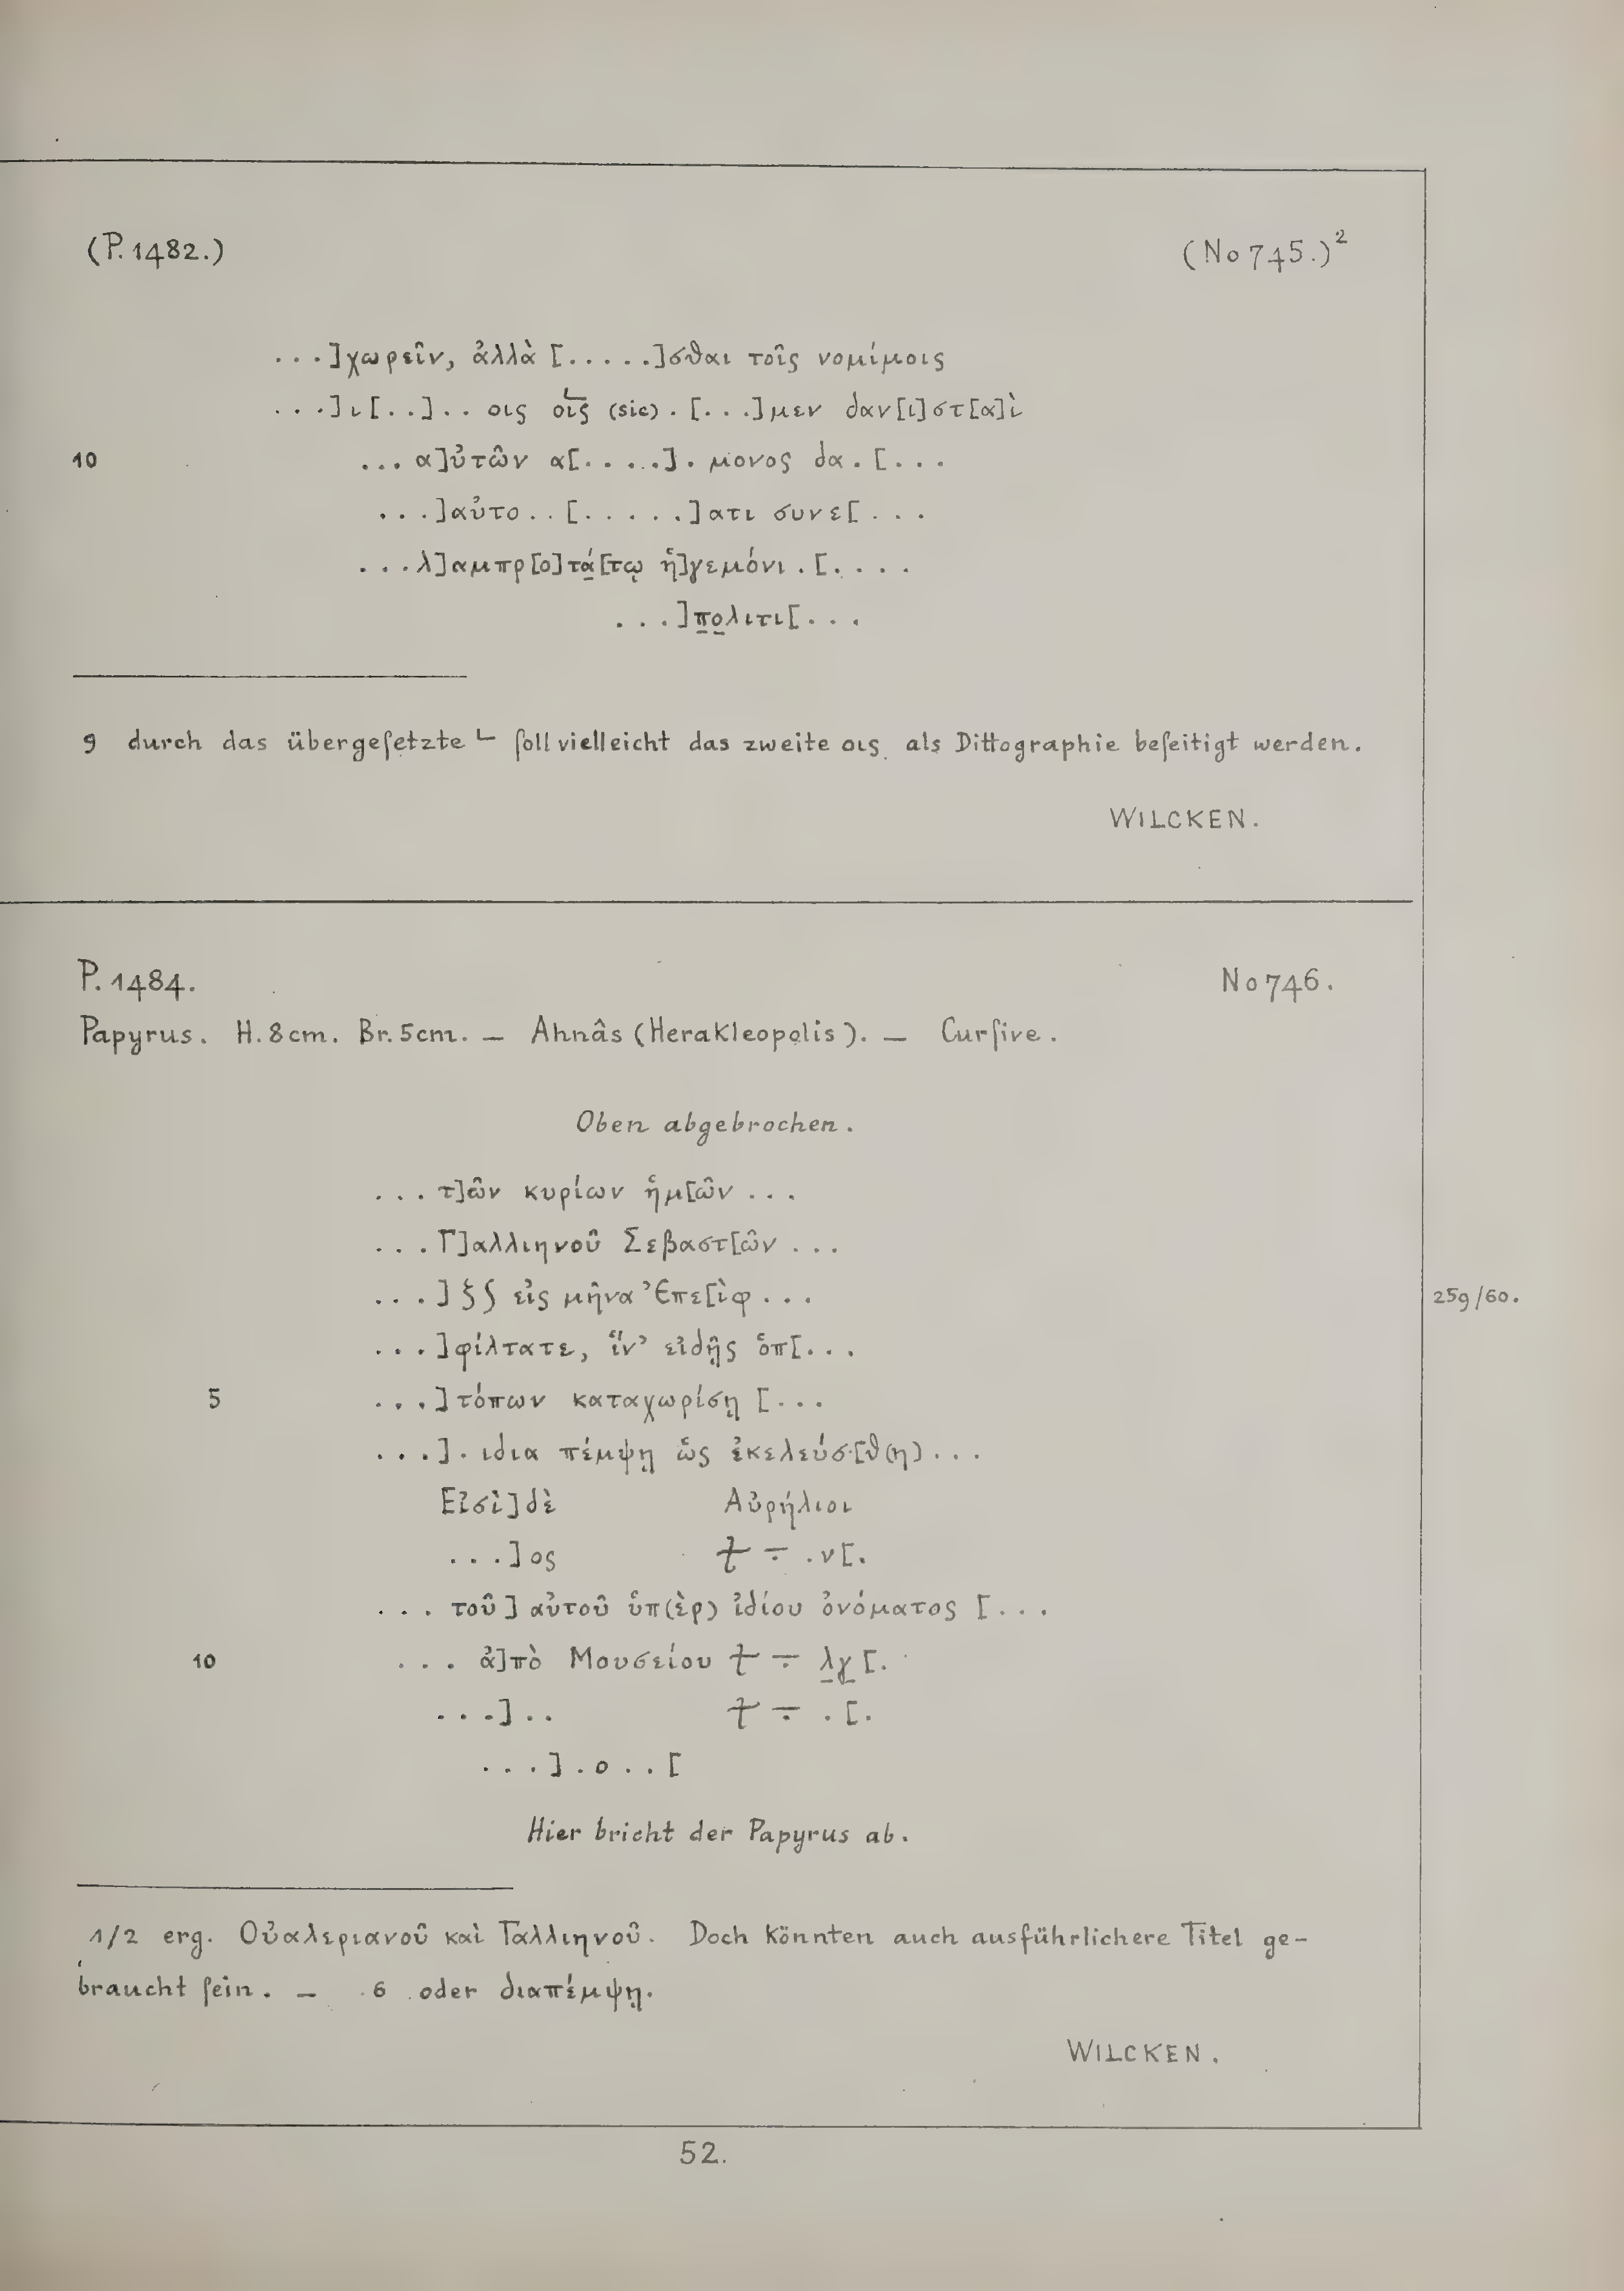 (P. 1482.) (No 745.)²
...]χωρεῖν, ἀλλὰ [.....]σθαι τοῖς νομίμοις
...]ι[..].. οις οις (sic) . [...]μεν δαν[ι]στ[α]ὶ
10 ... α]ὐτῶν α[.....]. μονος δα . [...
...]αὐτο..[......]ατι συνε[...
...λ]αμπρ[ο]τά[τῳ ἡ]γεμόνι . [....
...]πολιτι[...
9 durch das übergeſetzte ∟ ſoll vielleicht das zweite οις als Dittographie beſeitigt werden.
WILCKEN.
P. 1484. No 746.
Papyrus. H. 8 cm. Br. 5 cm. — Ahnâs (Herakleopolis). — Curſive.
Oben abgebrochen.
... τ]ῶν κυρίων ἡμ[ῶν ...
... Γ]αλλιηνοῦ Σεβαστ[ῶν ...
...] ξ∫ εἰς μῆνα Ἐπε[ὶφ ... 259/60.
...]φίλτατε, ἵν' εἰδῇς ὁπ[...
5 ...] τόπων καταχωρίσῃ [...
...]. ιδια πέμψῃ ὡς ἐκελεύσ[θ(η) ...
Εἰσὶ] δὲ Αὐρήλιοι
...]ος ⳨ ÷ .ν[.
... τοῦ] αὐτοῦ ὑπ(ὲρ) ἰδίου ὀνόματος [...
10 ... ἀ]πὸ Μουσείου ⳨ ÷ λγ [.
...].. ⳨ ÷ . [.
...] . ο . . [
Hier bricht der Papyrus ab.
1/2 erg. Οὐαλεριανοῦ καὶ Γαλλιηνοῦ. Doch könnten auch ausführlichere Titel ge-
braucht ſein. — 6 oder διαπέμψῃ.
WILCKEN.
52.